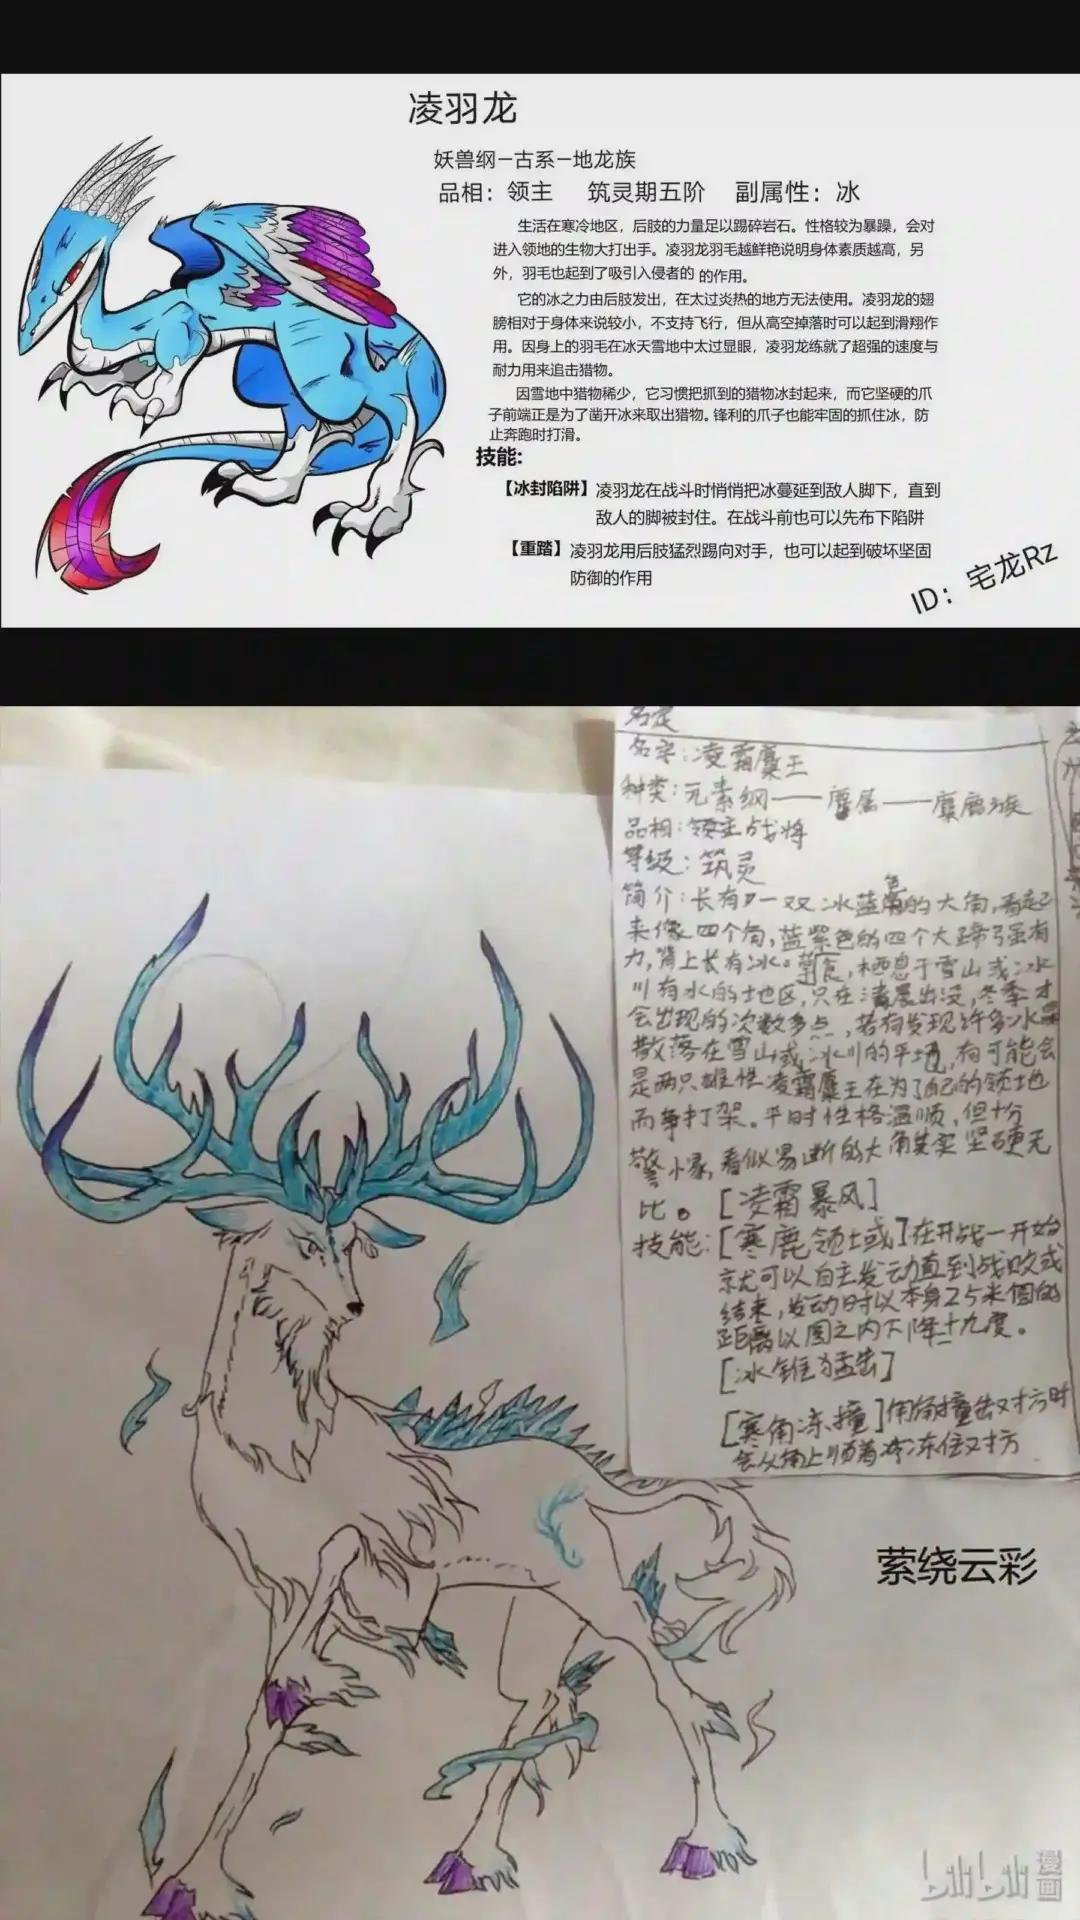 凌羽龙
妖兽纲—古系—地龙族
品相：领主 筑灵期五阶 副属性：冰
生活在寒冷地区，后肢的力量足以踢碎岩石。性格较为暴躁，会对
进入领地的生物大打出手。凌羽龙羽毛越鲜艳说明身体素质越高，另
外，羽毛也起到了吸引入侵者的 的作用。
它的冰之力由后肢发出，在太过炎热的地方无法使用。凌羽龙的翅
膀相对于身体来说较小，不支持飞行，但从高空掉落时可以起到滑翔作
用。因身上的羽毛在冰天雪地中太过显眼，凌羽龙练就了超强的速度与
耐力用来追击猎物。
因雪地中猎物稀少，它习惯把抓到的猎物冰封起来，而它坚硬的爪
子前端正是为了凿开冰来取出猎物。锋利的爪子也能牢固的抓住冰，防
止奔跑时打滑。
技能:
【冰封陷阱】凌羽龙在战斗时悄悄把冰蔓延到敌人脚下，直到
敌人的脚被封住。在战斗前也可以先布下陷阱
【重踏】凌羽龙用后肢猛烈踢向对手，也可以起到破坏坚固
防御的作用
ID：宅龙Rz
名字：凌霜麋王
种类：元素纲——属——麋鹿族
品相：领主战将
等级：筑灵
简介：长有一双冰蓝色的大角，看起
来像四个角，蓝紫色的四个大蹄弓强有
力，背上长有冰。草食，栖息于雪山或冰
川有水的地区，只在清晨出没，冬季才
会出现的次数多点，若有发现许多冰
散落在雪山或冰川的平地，有可能会
是两只雄性凌霜麋王在为了自己的领地
而争打架。平时性格温顺，但十分
警惕，看似易断的大角其实坚硬无
比。[凌霜暴风]
技能：[寒鹿领域]在开战一开始
就可以自主发动直到战败或
结束，发动时以本身25米圆的
距离以圆之内下降十九度。
[冰锥猛击]
[寒角冻撞]用角撞击对方时
会从角上顺着冷冻住对方
萦绕云彩
bilibili漫画